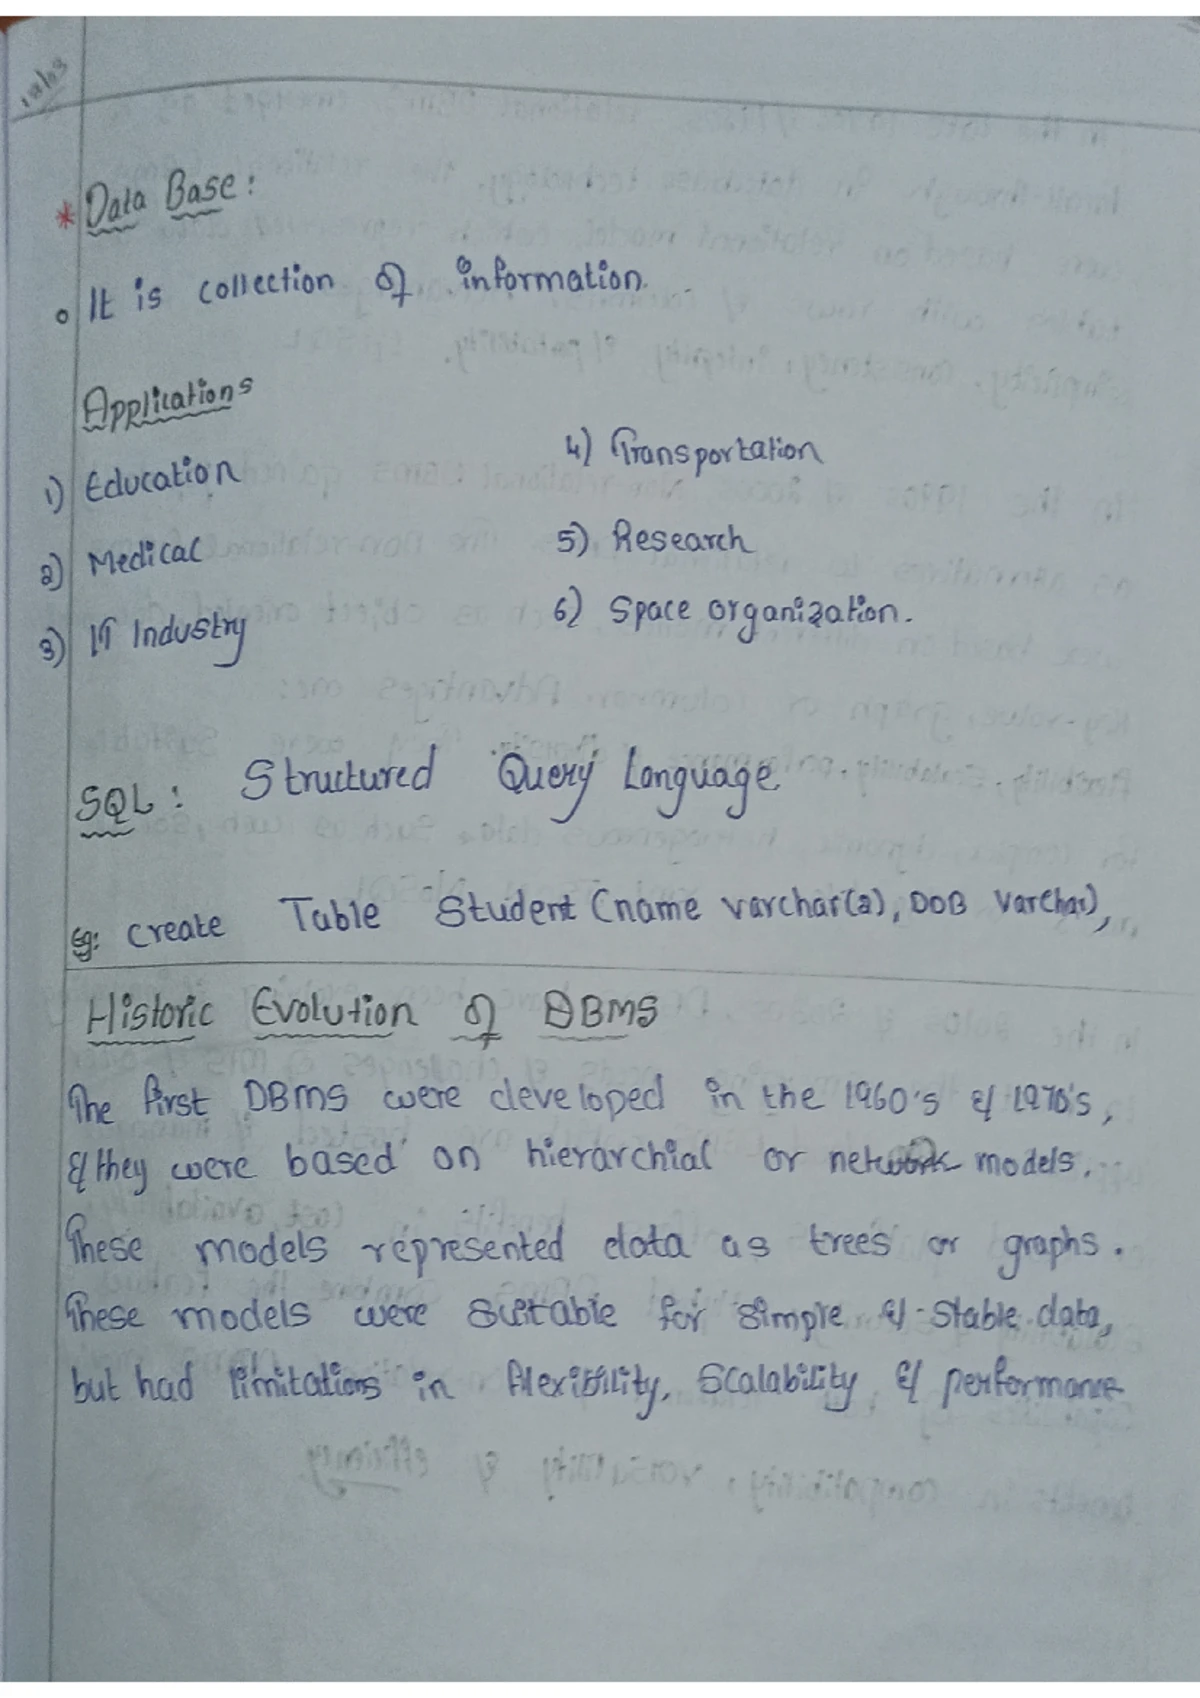 18/03
* Data Base:
o It is collection of information.
Applications
1) Education
2) Medical
3) IT Industry
4) Transportation
5) Research
6) Space organization.
SQL: Structured Query Language
Eg: Create Table Student (name varchar(2), DOB varchar),
Historic Evolution of DBMS
The first DBMS were developed in the 1960's & 1970's,
& they were based on hierarchial or network models.
These models represented data as trees or graphs.
These models were suitable for simple & stable data,
but had limitations in flexibility, Scalability & performance